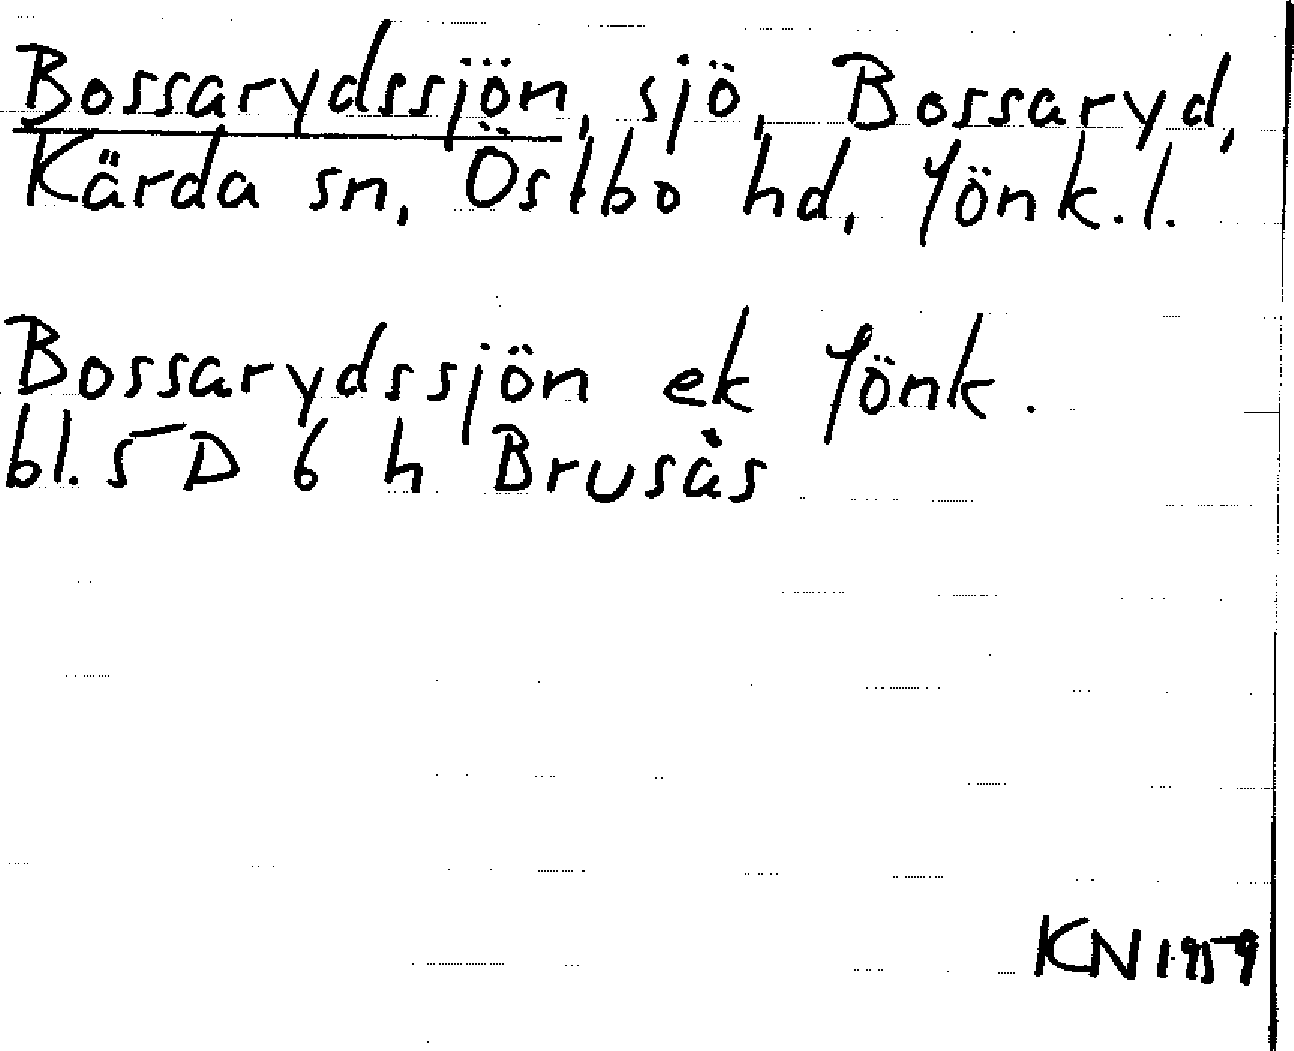 Bossarydssjön, sjö, Bossaryd,
Kärda sn, Östbo hd, Jönk.l.
Bossarydssjön ek Jönk.
bl. 5 D 6 h Brusås
KN 1959